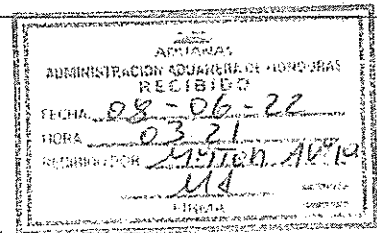 ADUANAS
ADMINISTRACIÓN ADUANERA DE HONDURAS
RECIBIDO
FECHA 08-06-22
HORA 03 21
RECIBIDO POR
FIRMA